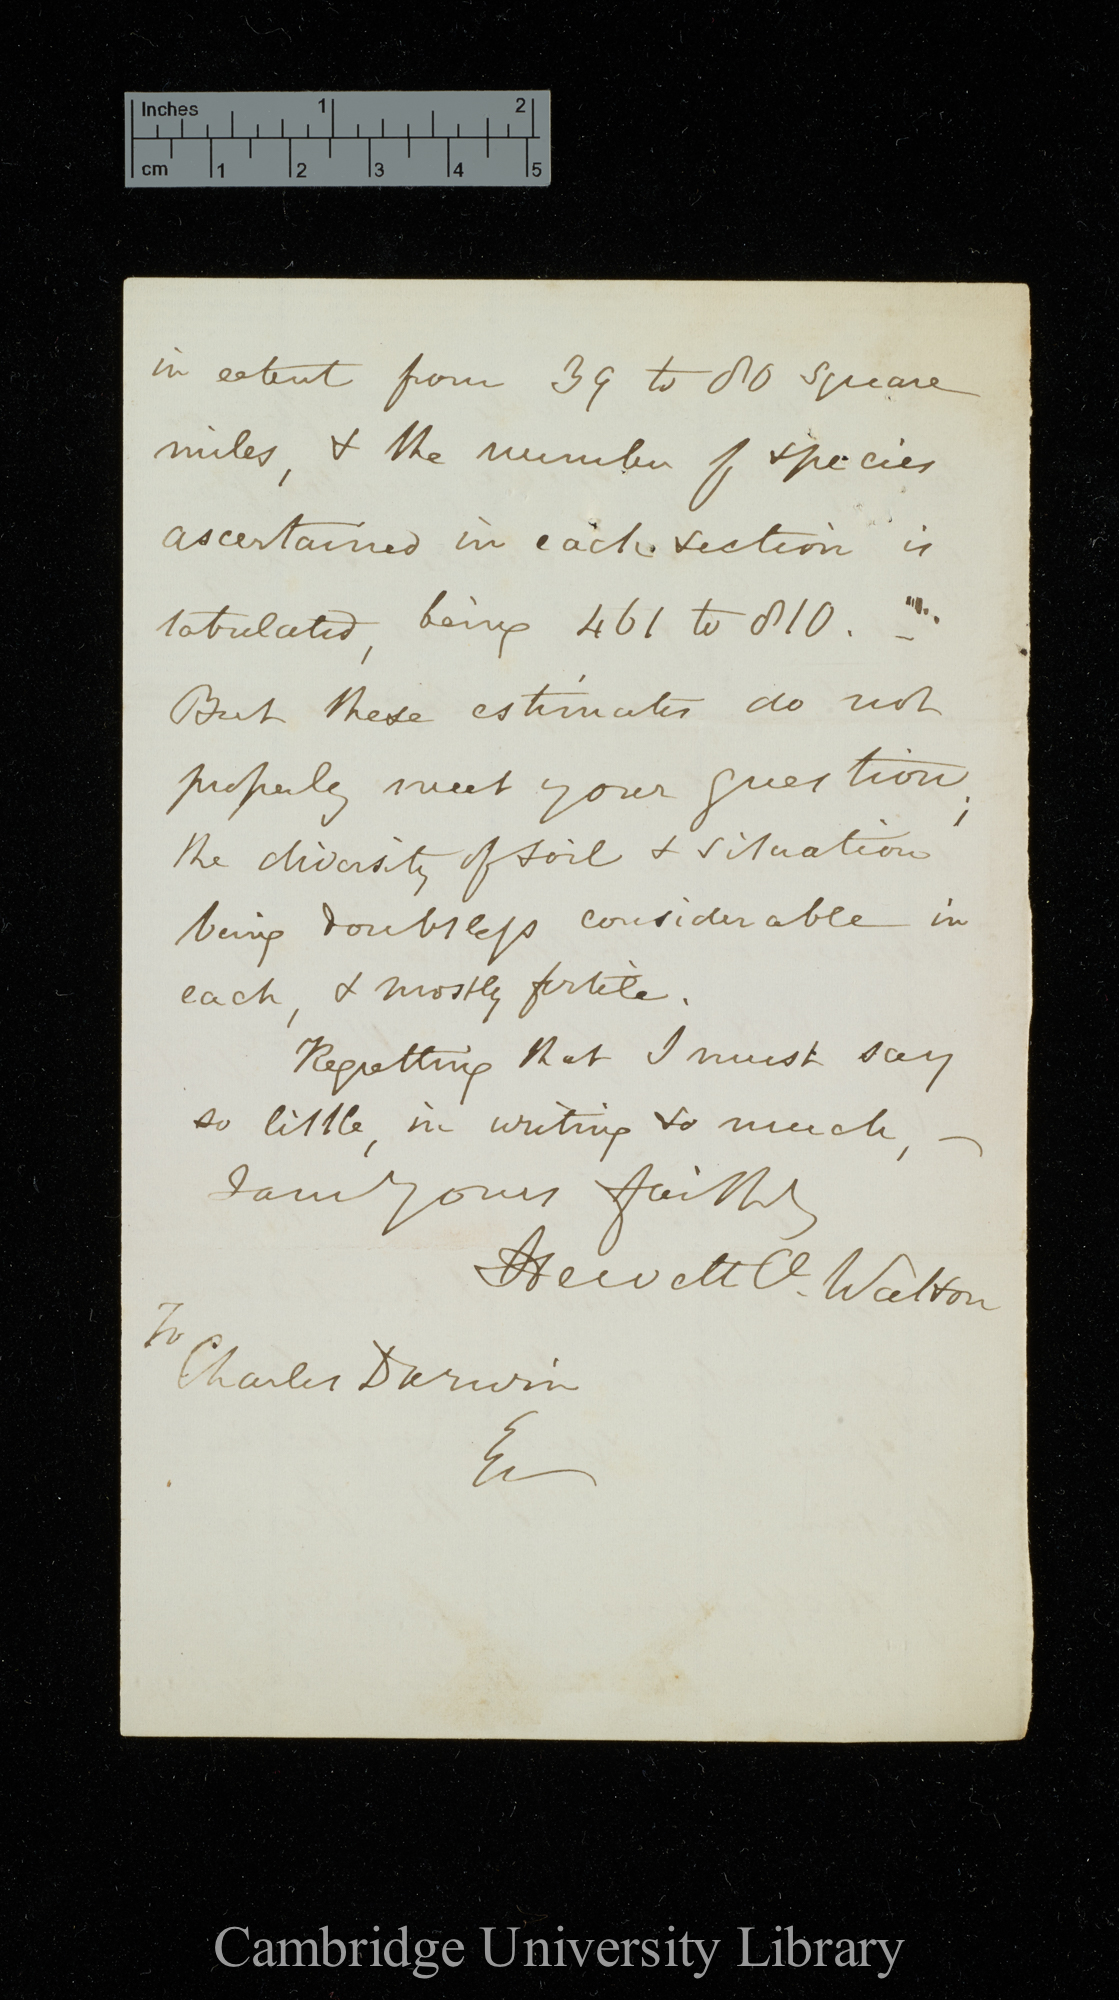 Inches 1 2
cm 1 2 3 4 5
in extent from 39 to 80 square
miles, & the number of species
ascertained in each section is
tabulated, being 461 to 810. —
But these estimates do not
properly meet your question;
the diversity of soil & situation
being doubtless considerable in
each, & mostly fertile.
Regretting that I must say
so little, in writing so much, —
I am Yours faithly
Hewett C. Watson
To
Charles Darwin
Cambridge University Library